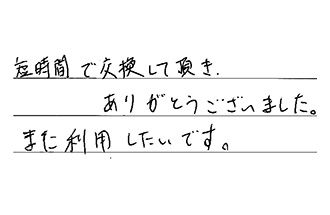 短時間で交換して頂き.
ありがとうございました。
また利用したいです。